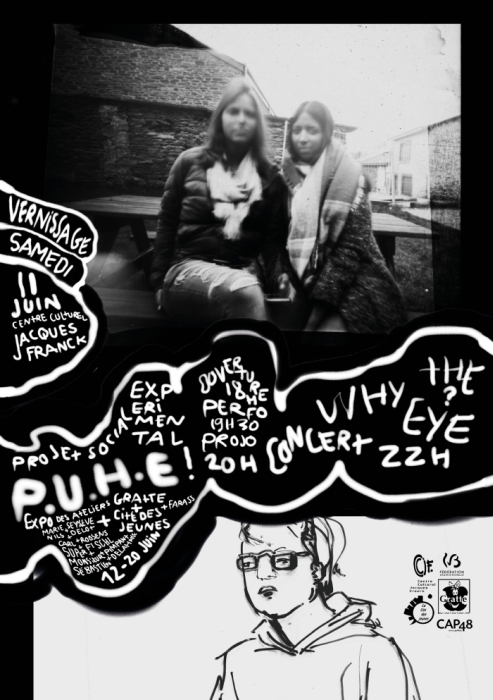 VERNISSAGE
SAMEDI
11
JUIN
CENTRE CULTUREL
JACQUES
FRANCK
EXP
ERI
MEN
TAL
PROJET SOCIAL
P.U.H.E!
OUVERTURE
18H
PERFO
19H30
PROJO
20H
CONCERT
WHY
THE
?
EYE
22H
EXPO DES ATELIERS
GRATTE
+ CITÉ DES
JEUNES
+ FARASS
MARIE
NILS
CARL ROOSENS
MONSIEUR PIMPANT
SÉBASTIEN DELAHAYE
12-20 JUIN
Centre
Culturel
Jacques
Franck
FÉDÉRATION
Gratte
CAP48